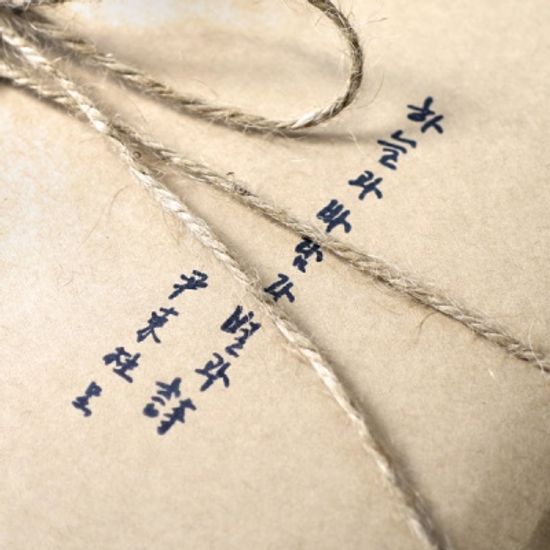 하늘과 바람과 별과 詩
尹東柱 呈